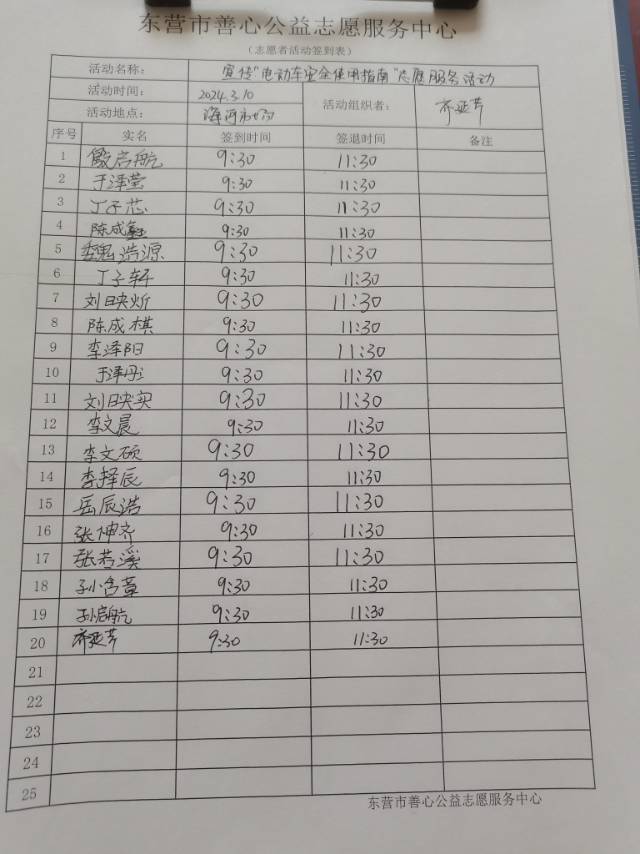 东营市善心公益志愿服务中心
（志愿者活动签到表）
活动名称： 宣传"电动车安全使用指南"志愿服务活动
活动时间： 2024.3.10 活动组织者： 齐亚芹
活动地点： 海河小区
序号 实名 签到时间 签退时间 备注
1 殷启航 9:30 11:30
2 于泽莹 9:30 11:30
3 丁子芯 9:30 11:30
4 陈成 9:30 11:30
5 魏浩源 9:30 11:30
6 丁子轩 9:30 11:30
7 刘映炘 9:30 11:30
8 陈成棋 9:30 11:30
9 李泽阳 9:30 11:30
10 于泽彤 9:30 11:30
11 刘映实 9:30 11:30
12 李文晨 9:30 11:30
13 李文硕 9:30 11:30
14 李择辰 9:30 11:30
15 岳辰浩 9:30 11:30
16 张坤齐 9:30 11:30
17 张若溪 9:30 11:30
18 孙含萱 9:30 11:30
19 孙启航 9:30 11:30
20 齐亚芹 9:30 11:30
21
22
23
24
25
东营市善心公益志愿服务中心